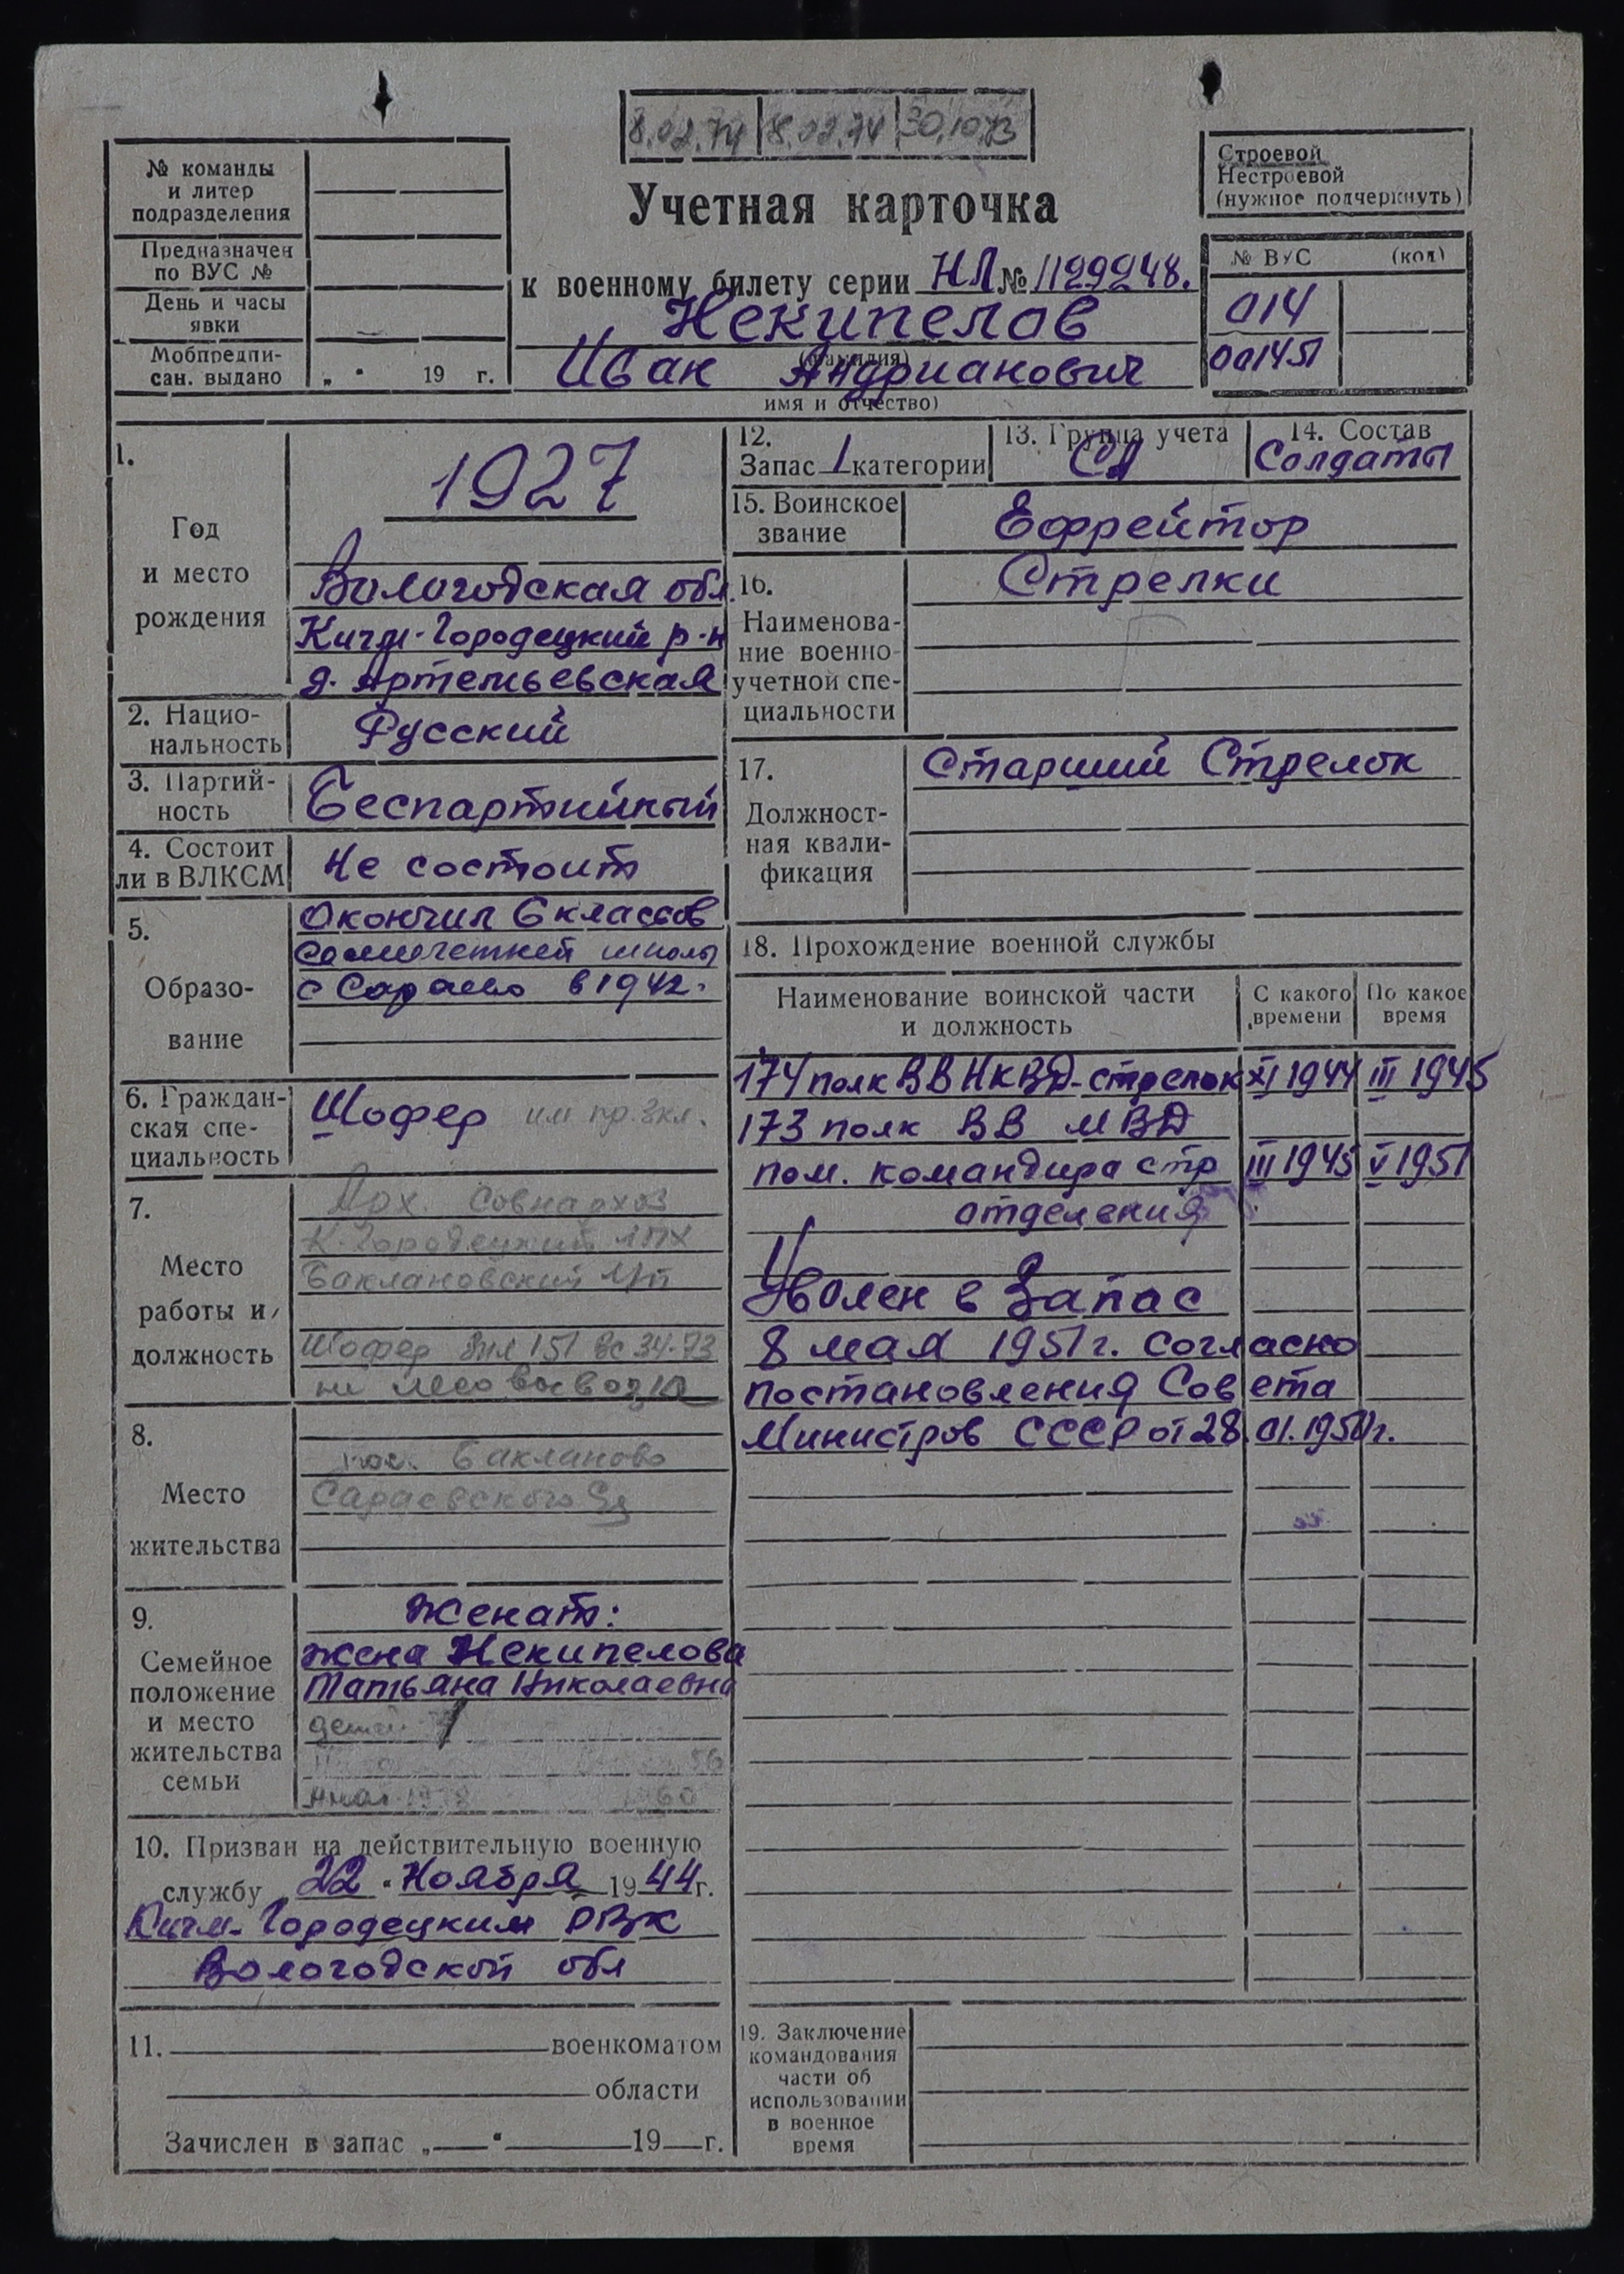 8.02.74 18.02.74 30.10.73
№ команды
и литер
подразделения
Предназначен
по ВУС №
День и часы
явки
Мобпредпи-
сан. выдано „ " 19 г.
Учетная карточка
к военному билету серии НЛ № 1129248.
Некипелов
(фамилия)
Иван Андрианович
имя и отчество)
Строевой
Нестроевой
(нужное подчеркнуть)
№ ВУС (код)
014
001451
1.
Год
и место
рождения
1927
Вологодская обл.
Кичм-Городецкий р-н
д. Артемьевская
2. Нацио-
нальность
Русский
3. Партий-
ность
Беспартийный
4. Состоит
ли в ВЛКСМ
Не состоит
5.
Образо-
вание
Окончил 6 классов
семилетней школы
с Сараево в 1942.
6. Граждан-
ская спе-
циальность
Шофер 3 кл.
7.
Место
работы и
должность
Арх. совнархоз
К-Городецкий ЛПХ
Баклановский
Шофер 151 34-73
8.
Место
жительства
пос. Бакланово
Сараевского
9.
Семейное
положение
и место
жительства
семьи
Женат:
жена Некипелова
Татьяна Николаевна
детей
56
60
10. Призван на действительную военную
службу „ 22 " Ноября 1944 г.
Кичм-Городецким РВК
Вологодской обл
11. военкоматом
области
Зачислен в запас „ " 19 г.
12.
Запас 1 категории
13. Группа учета
СА
14. Состав
Солдаты
15. Воинское
звание
Ефрейтор
16.
Наименова-
ние военно
учетной спе-
циальности
Стрелки
17.
Должност-
ная квали-
фикация
Старший Стрелок
18. Прохождение военной службы
Наименование воинской части
и должность
С какого
времени
По какое
время
174 полк ВВ НКВД-стрелок XI 1944 III 1945
173 полк ВВ МВД
пом. командира стр III 1945 V 1951
отделения
Уволен в Запас
8 мая 1951 г. согласно
постановления Совета
Министров СССР от 28.01.1950 г.
19. Заключение
командования
части об
использовании
в военное
время